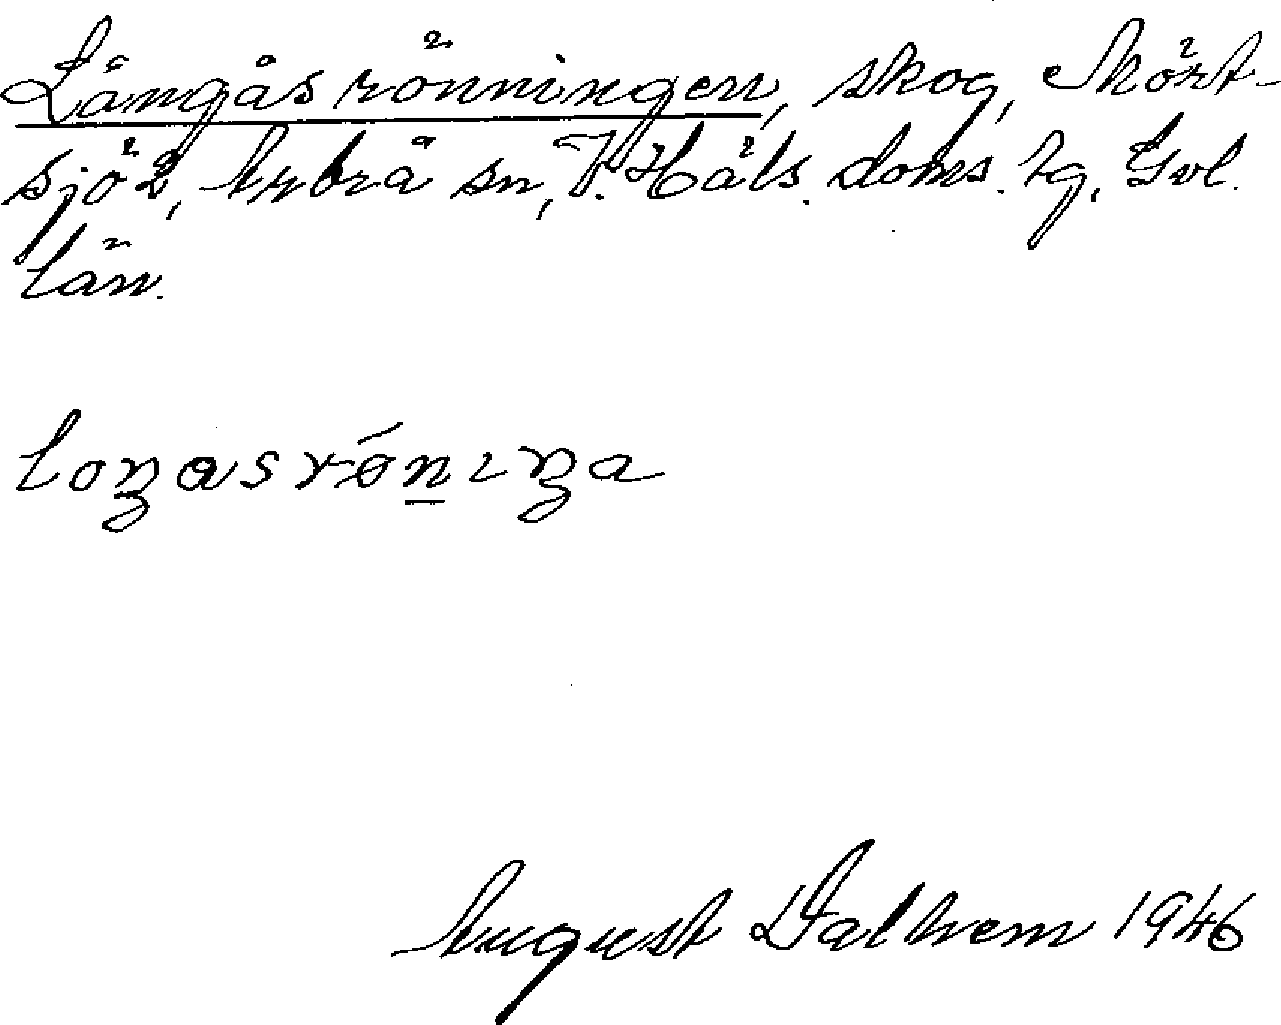 Långåsrönningen, skog, Mört-
sjö 2, Arbrå sn, V. Häls. doms. tg. Gvl.
län.
loŋasrǿn̲ıŋa
August Dalhem 1946